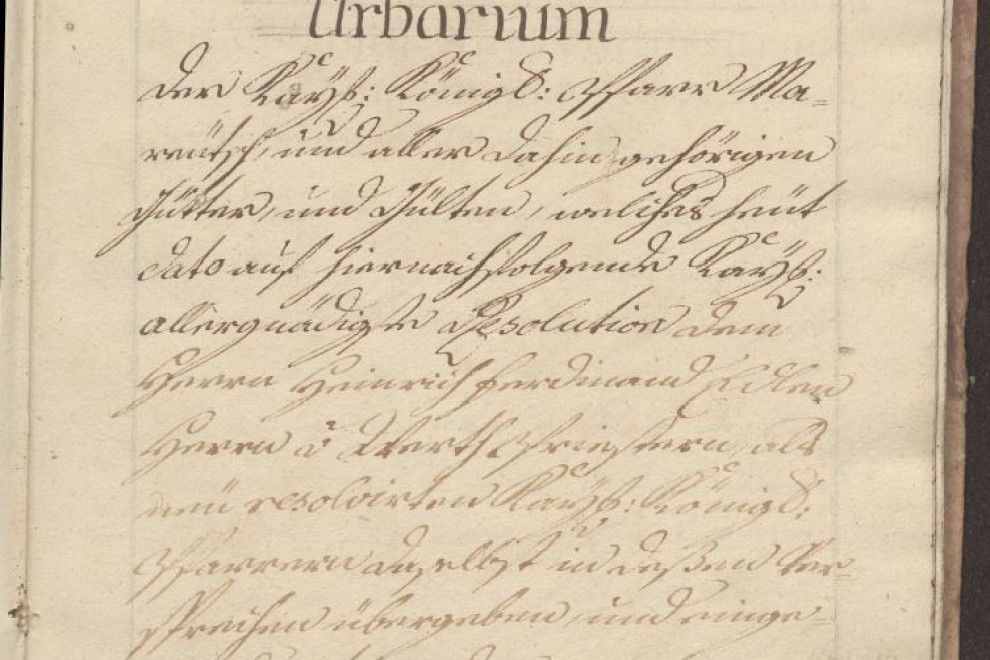 Urbarium
Der Kaÿß: Königl: Pfarr Ma-
reütsch, und aller dahin gehörigen
Gütter, und Gülten, welches heüt
dato auf hiernachfolgende Kaÿß:
allergnädigste Resolution dem
Herrn Heinrich Ferdinand Edlen
Herrn v Werth Priestern, als
neü resolvirten Kaÿß: Königl:
Pfarrern daselbst in deßen Ver-
sprechen übergeben, und einge-